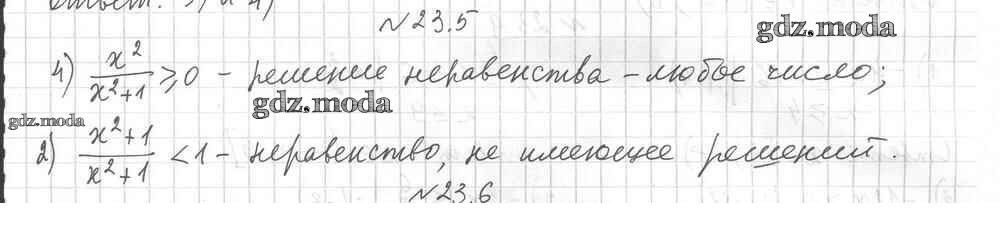 Ответ: 3) и 4)
№23.5
gdz.moda
1) x²/(x²+1) ≥ 0 - решение неравенства - любое число;
gdz.moda
gdz.moda
2) (x²+1)/(x²+1) < 1 - неравенство, не имеющее решений.
№23.6